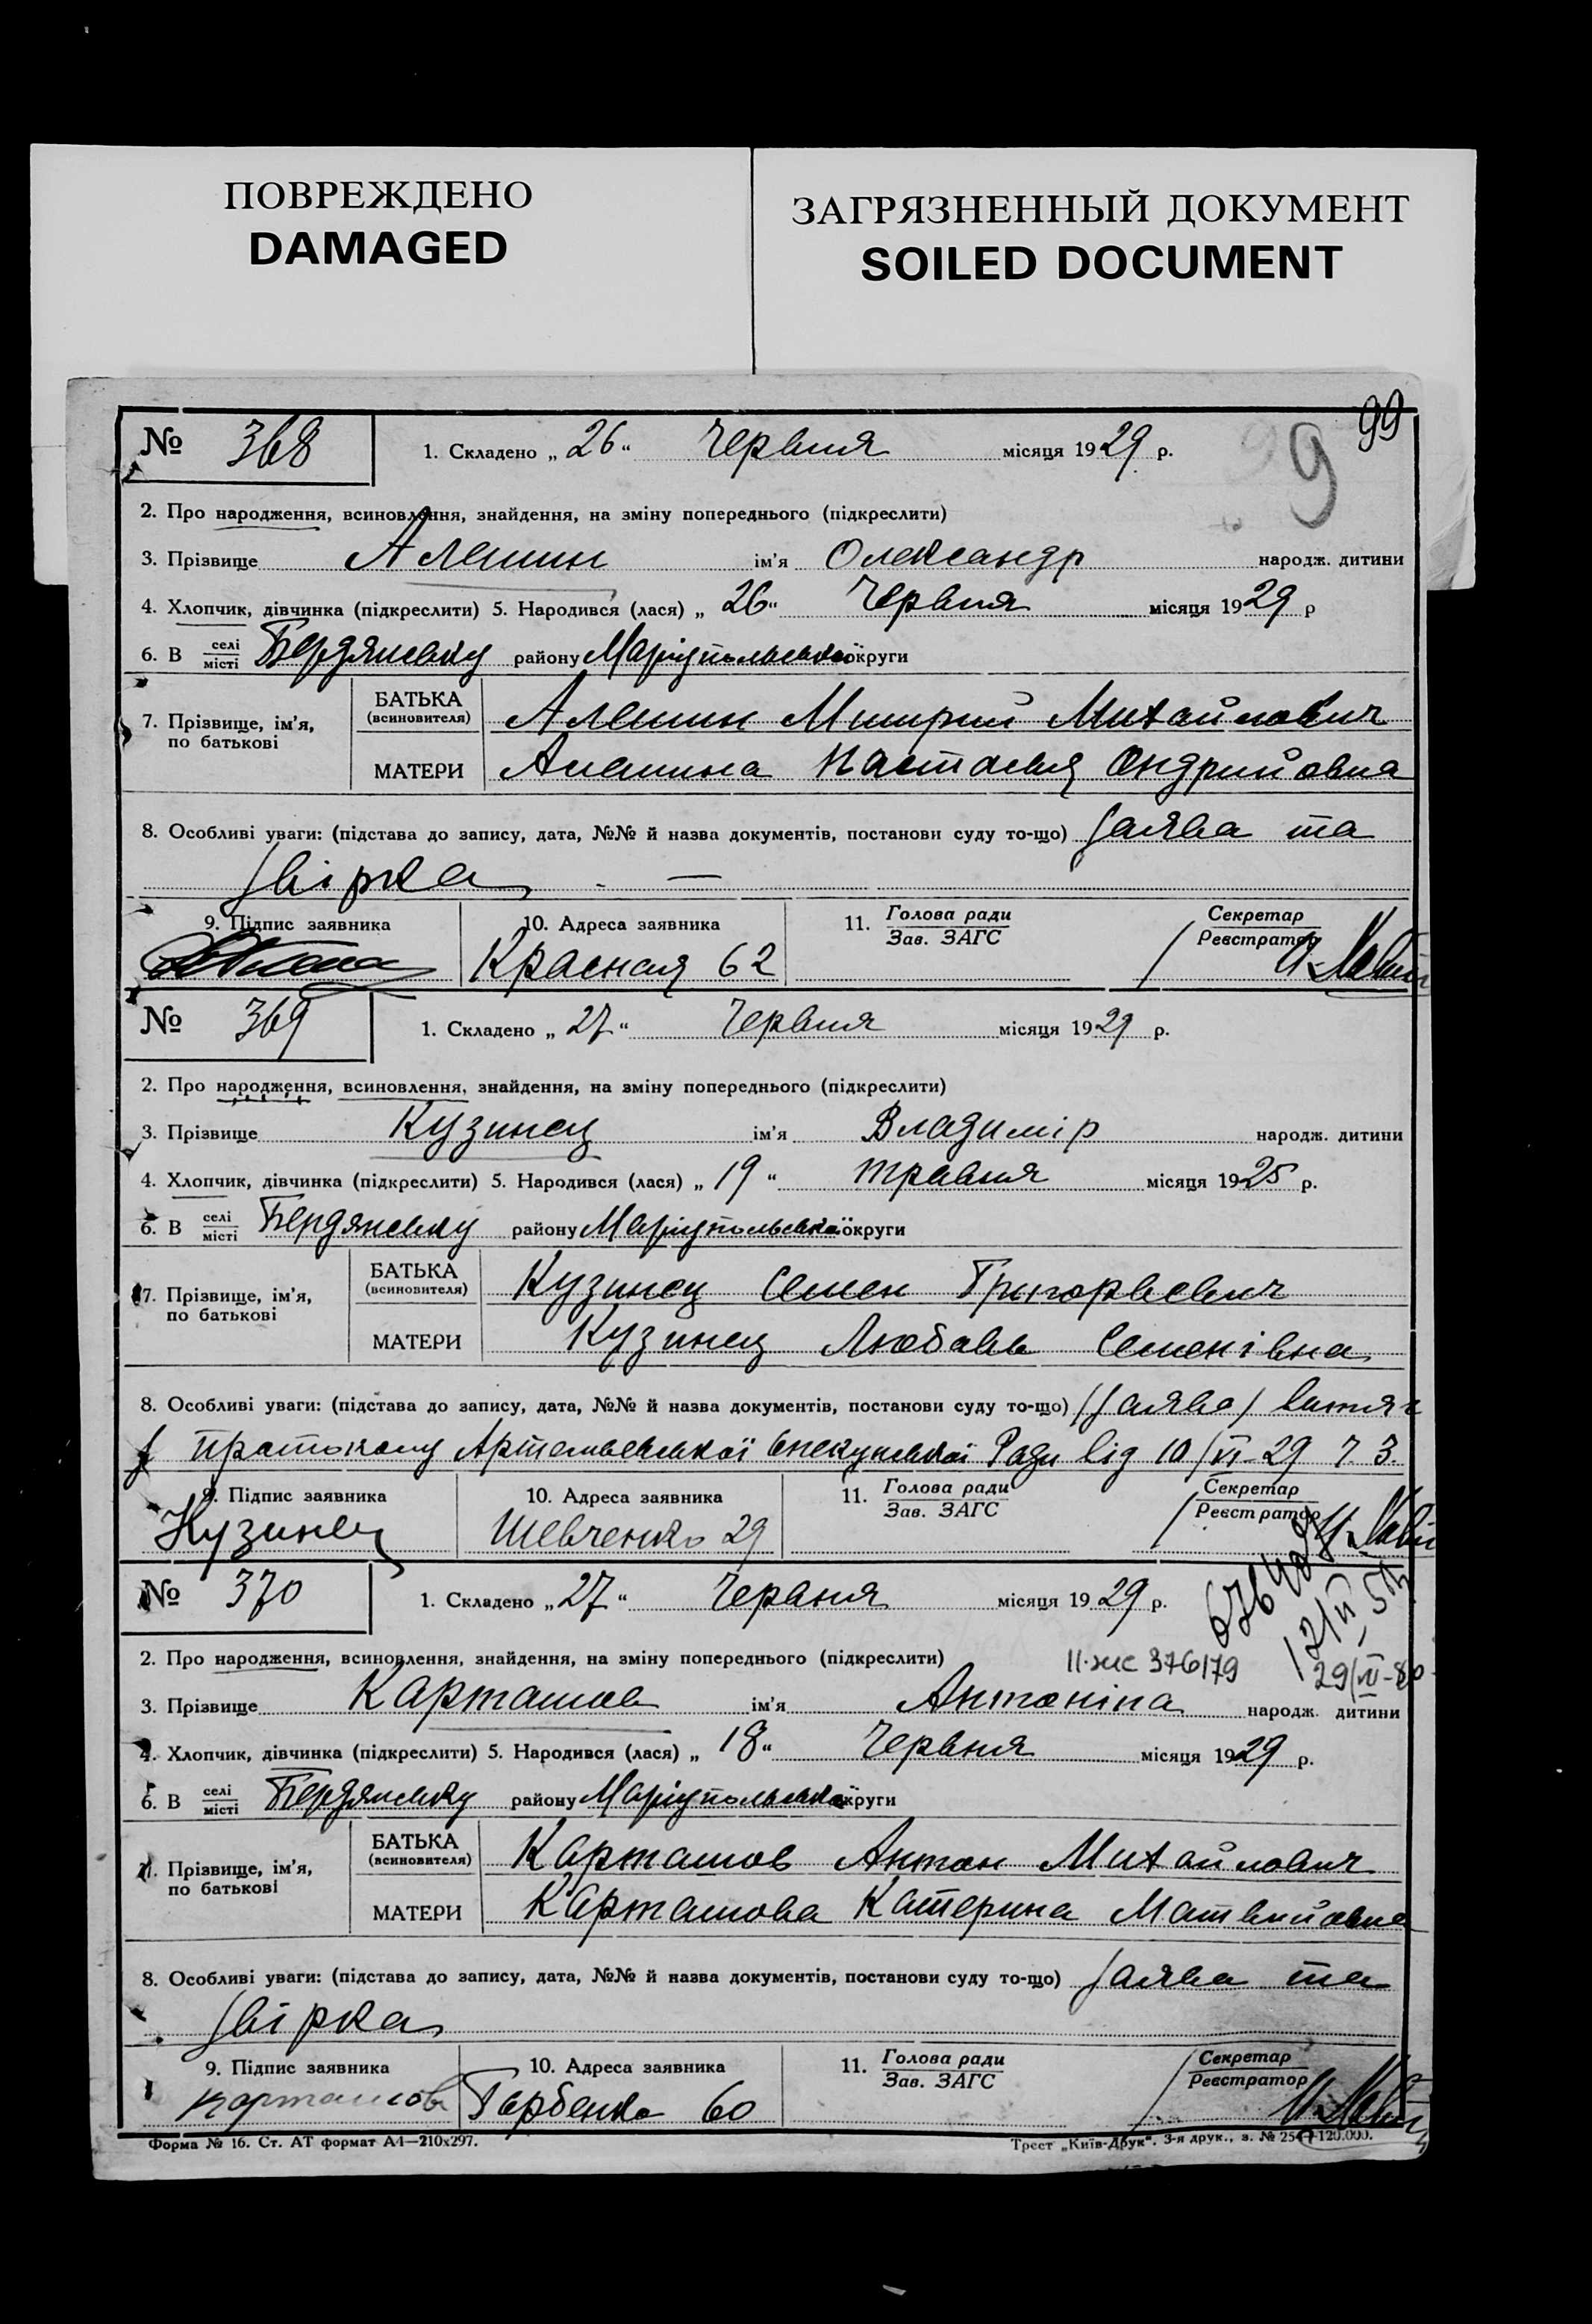 ПОВРЕЖДЕНО
DAMAGED
ЗАГРЯЗНЕННЫЙ ДОКУМЕНТ
SOILED DOCUMENT
99
9
№ 368 1. Складено „ 26 “ Червня місяця 1929 р.
2. Про народження, всиновлення, знайдення, на зміну попереднього (підкреслити)
3. Прізвище Алешин ім’я Олександр народж. дитини
4. Хлопчик, дівчинка (підкреслити) 5. Народився (лася) „ 26 “ Червня місяця 1929 р
6. В селі місті Бердянську району Маріупольської округи
7. Прізвище, ім’я, по батькові
БАТЬКА (всиновителя) Алешин Михайлович
МАТЕРИ Алешина Настасья Ондрийовна
8. Особливі уваги: (підстава до запису, дата, №№ й назва документів, постанови суду то-що) Заява та
Звірка
9. Підпис заявника 10. Адреса заявника 11. Голова ради Зав. ЗАГС Секретар Реєстратор
Красная 62
№ 369 1. Складено „ 27 “ Червня місяця 1929 р.
2. Про народження, всиновлення, знайдення, на зміну попереднього (підкреслити)
3. Прізвище Кузинец ім’я Владимір народж. дитини
4. Хлопчик, дівчинка (підкреслити) 5. Народився (лася) „ 19 “ травня місяця 1925 р.
6. В селі місті Бердянську району Маріупольської округи
7. Прізвище, ім’я, по батькові
БАТЬКА (всиновителя) Кузинец Семен Григорьевич
МАТЕРИ Кузинец Любовь Семенівна
8. Особливі уваги: (підстава до запису, дата, №№ й назва документів, постанови суду то-що) (Заява) витяг
з протоколу Опекунської Ради від 10/VI-29 ч. 3.
9. Підпис заявника 10. Адреса заявника 11. Голова ради Зав. ЗАГС Секретар Реєстратор
Кузинец Шевченко 29
№ 370 1. Складено „ 27 “ Червня місяця 1929 р.
2. Про народження, всиновлення, знайдення, на зміну попереднього (підкреслити)
3. Прізвище Карташов ім’я Антоніна народж. дитини
4. Хлопчик, дівчинка (підкреслити) 5. Народився (лася) „ 18 “ Червня місяця 1929 р.
6. В селі місті Бердянську району Маріупольської округи
7. Прізвище, ім’я, по батькові
БАТЬКА (всиновителя) Карташов Антон Михайлович
МАТЕРИ Карташова Катерина Матвийовна
8. Особливі уваги: (підстава до запису, дата, №№ й назва документів, постанови суду то-що) Заява та
Звірка
9. Підпис заявника 10. Адреса заявника 11. Голова ради Зав. ЗАГС Секретар Реєстратор
Карташов Горбенка 60
Форма № 16. Ст. АТ формат А4—210х297.
Трест „Київ-Друк“. 3-я друк., з. №